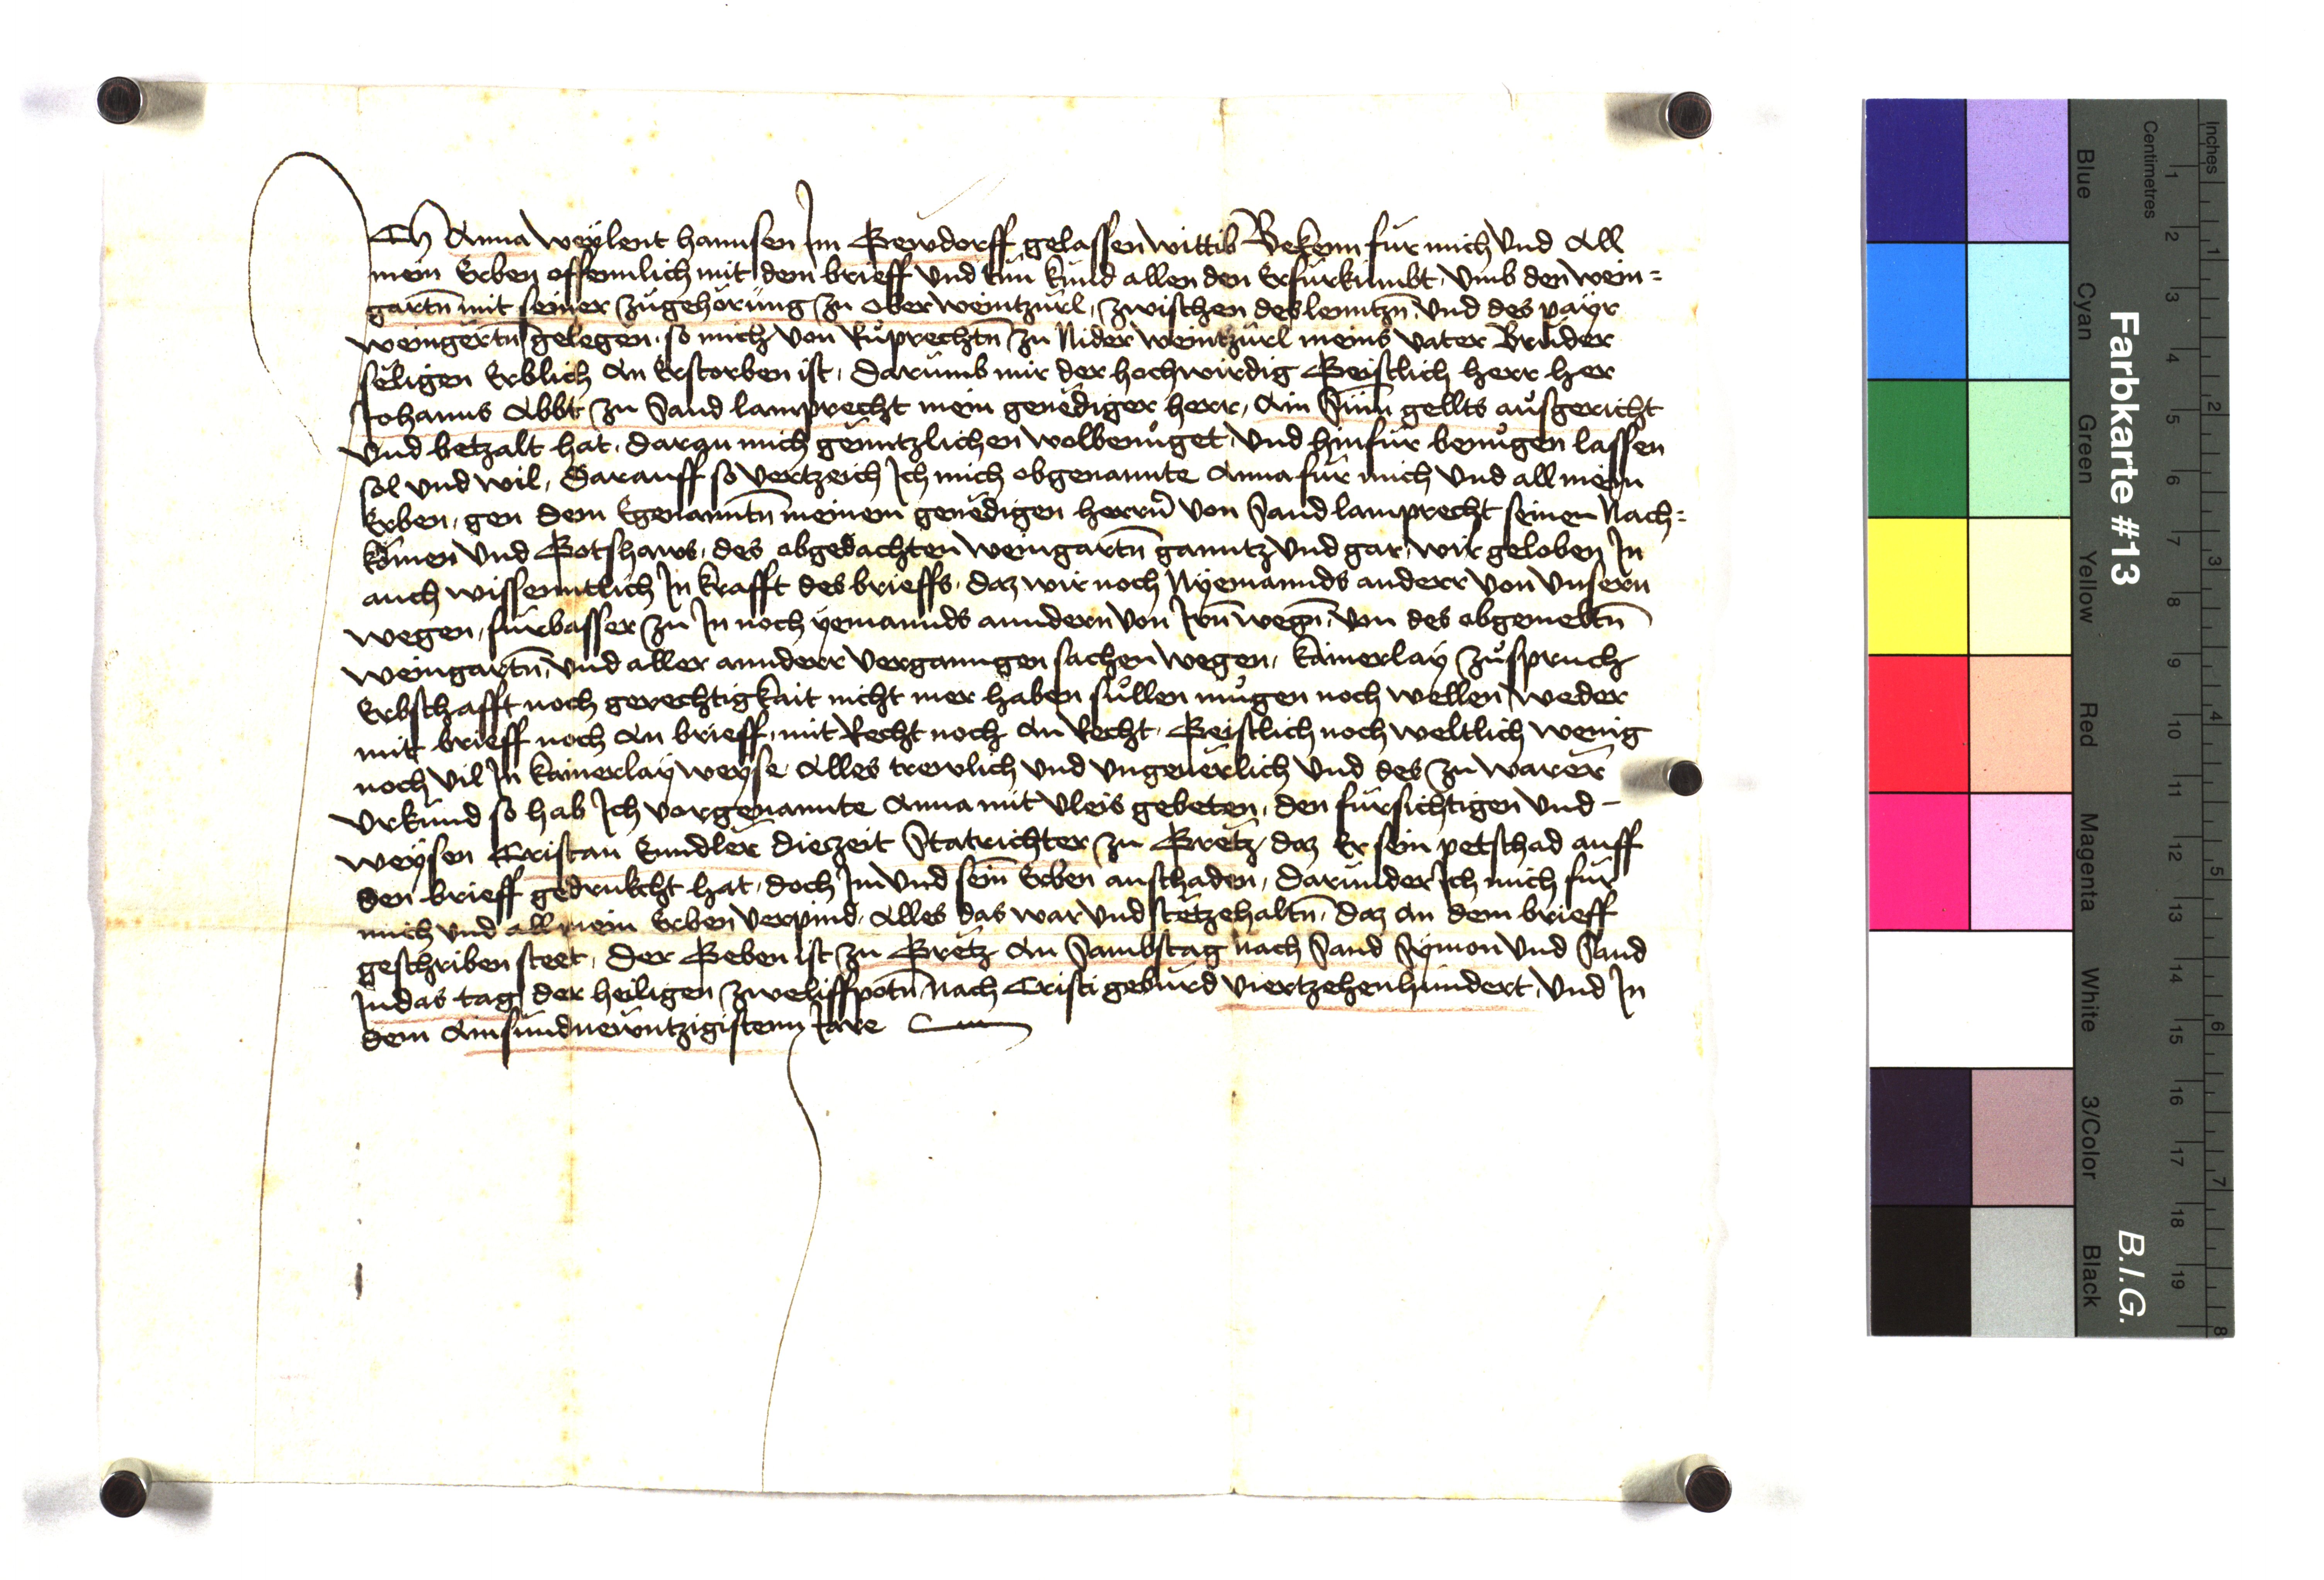 Ich Anna weylent hannsen Im Gewdorff gelassen wittib Bekenn fur mich Vnd All
mein Erben offennlich mit dem brieff Vnd tun kund allen den Erfurkumbt, Vmb den wein=
gartn̄ mit seiner zugehorung zu ober weintzurl, zwischen des lenntzn̄ Vnd des payr
weingertn̄ gelegen, so mich von Ruprechtn̄ zu Nider weintzurl meins vater Bruder
seligen Erblich An Erstorben ist, Darumb mir der hochwirdig Geistlich herr her
Johanns Abbt zu Sand lamprecht mein genediger herr, Ain Sum̄ gellts ausgericht
Vnd betzalt hat, daran mich genntzlichen wolbenuget, Vnd hinfur benugen lassen
sol Vnd wil, Darauff so vertzeich Ich mich obgenannte Anna fur mich Vnd all mein
Erben, gen dem Egenanntn̄ meinem genedigen herrn̄ von Sand lamprecht seinen Nach=
komen Vnd Gotshaws, des obgedachten weingartn̄ ganntz Vnd gar, wir geloben In
auch wissenntlich In krafft des brieffs, daz wir noch Nyemannds annderr von Vnsern
wegen, furbasser zu In noch yemannds anndern von Irn̄ wegn̄, von des obgemeltn̄
weingartn̄, Vnd aller annderr Vergangen sachen wegen, kainerlay zuspruch
Erbschafft noch gerechtigkait nicht mer haben sullen mugen noch wellen weder
mit brieff noch An brieff, mit Recht noch An Recht, Geistlich noch weltlich wenig
noch vil In kainerlay weyse, Alles trewlich Vnd Vngeuerlich Vnd des zu warer
Vrkund so hab Ich vorgenannte Anna mit Vleis gebeten, den fursichtigen Vnd –
weysen Cristan diezeit Statrichter zu Gretz, daz Er sein petschad auff
den brieff gedrukcht hat, doch Im Vnd sein̄ Erben anschaden, darunder Ich mich fur
mich Vnd all mein Erben verpind, Alles das war Vnd stet zehaltn̄, daz An dem brieff
geschriben steet, Der Geben ist zu Gretz An Sambstag nach Sand Symon Vnd Sand
Judas tag der heiligen zweliffpotn̄ Nach Cristi geburd Viertzehenhundert, Vnd In
dem Ainsundnewntzigistenn Jare
Farbkarte #13
B.I.G.
Inches
Centimetres
1 2 3 4 5 6 7 8 9 10 11 12 13 14 15 16 17 18 19
1 2 3 4 5 6 7 8
Blue
Cyan
Green
Yellow
Red
Magenta
White
3/Color
Black